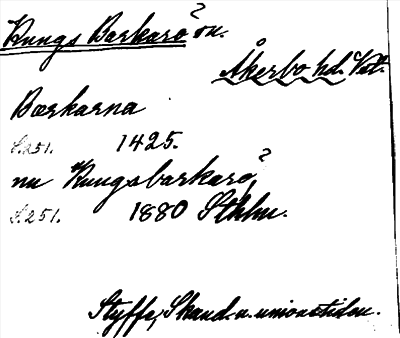 Kungs Barkarö sn.
Åkerbo hd. Vstl.
Barkarna
S.251. 1425.
nu Kungsbarkarö
S.251. 1880 Sthlm.
Styffe, Skand. u. unionstiden.